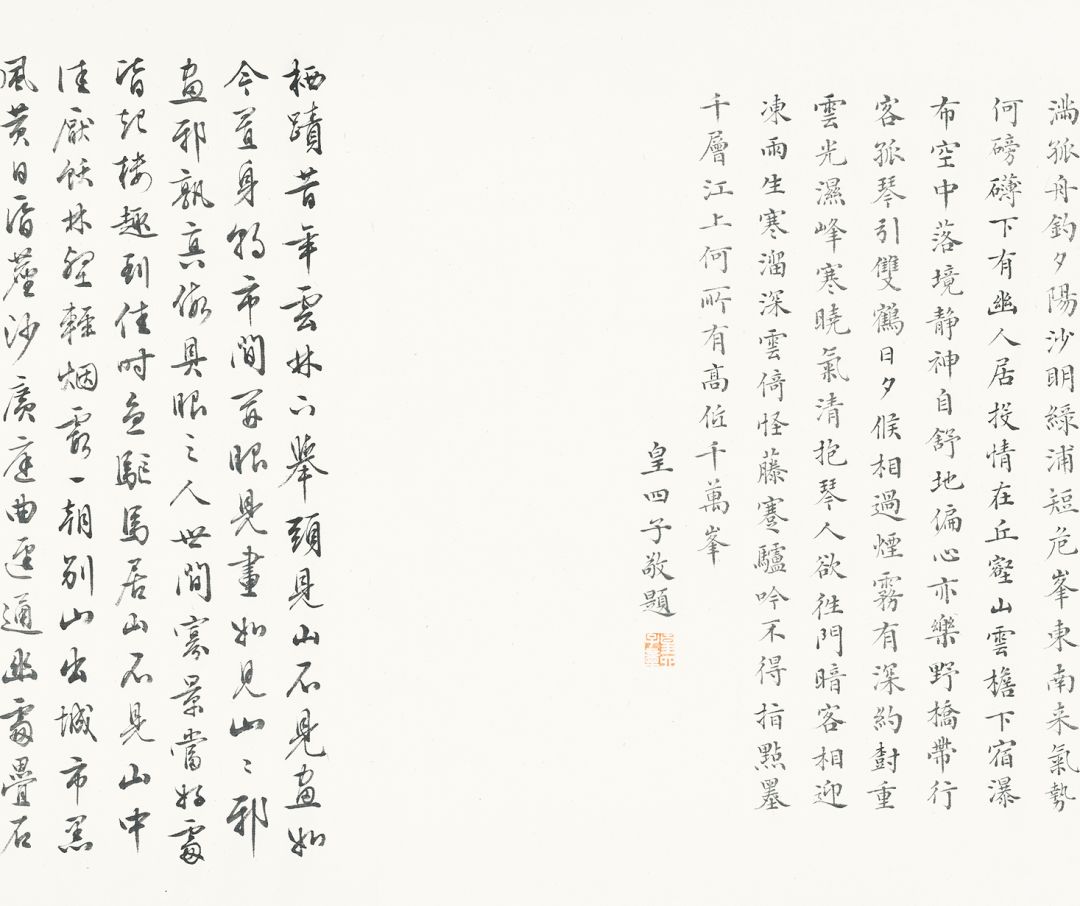 滿孤舟釣夕陽沙明綠浦短危峯東南来氣勢
何磅礴下有幽人居投情在丘壑山雲檐下宿瀑
布空中落境静神自舒地偏心亦樂野橋帶行
客孤琴引雙鶴日夕候相過煙霧有深約對重
雲光濕峰寒曉氣清抱琴人欲往門暗客相迎
凍雨生寒溜深雲倚怪藤蹇驢吟不得指點墨
千層江上何所有高低千萬峯
皇四子敬題
栖蹟昔年雲林下舉頭見山不見畫如
今置身朝市間開眼見畫如見山〻邪
畫邪孰真假具眼之人世間寡景當好處
皆起樓趣到佳時急駐馬居山不見山中
佳厭飫林壑輕烟霞一朝別山出城市黑
風黃日塵沙廣庭曲逕通幽處疊石